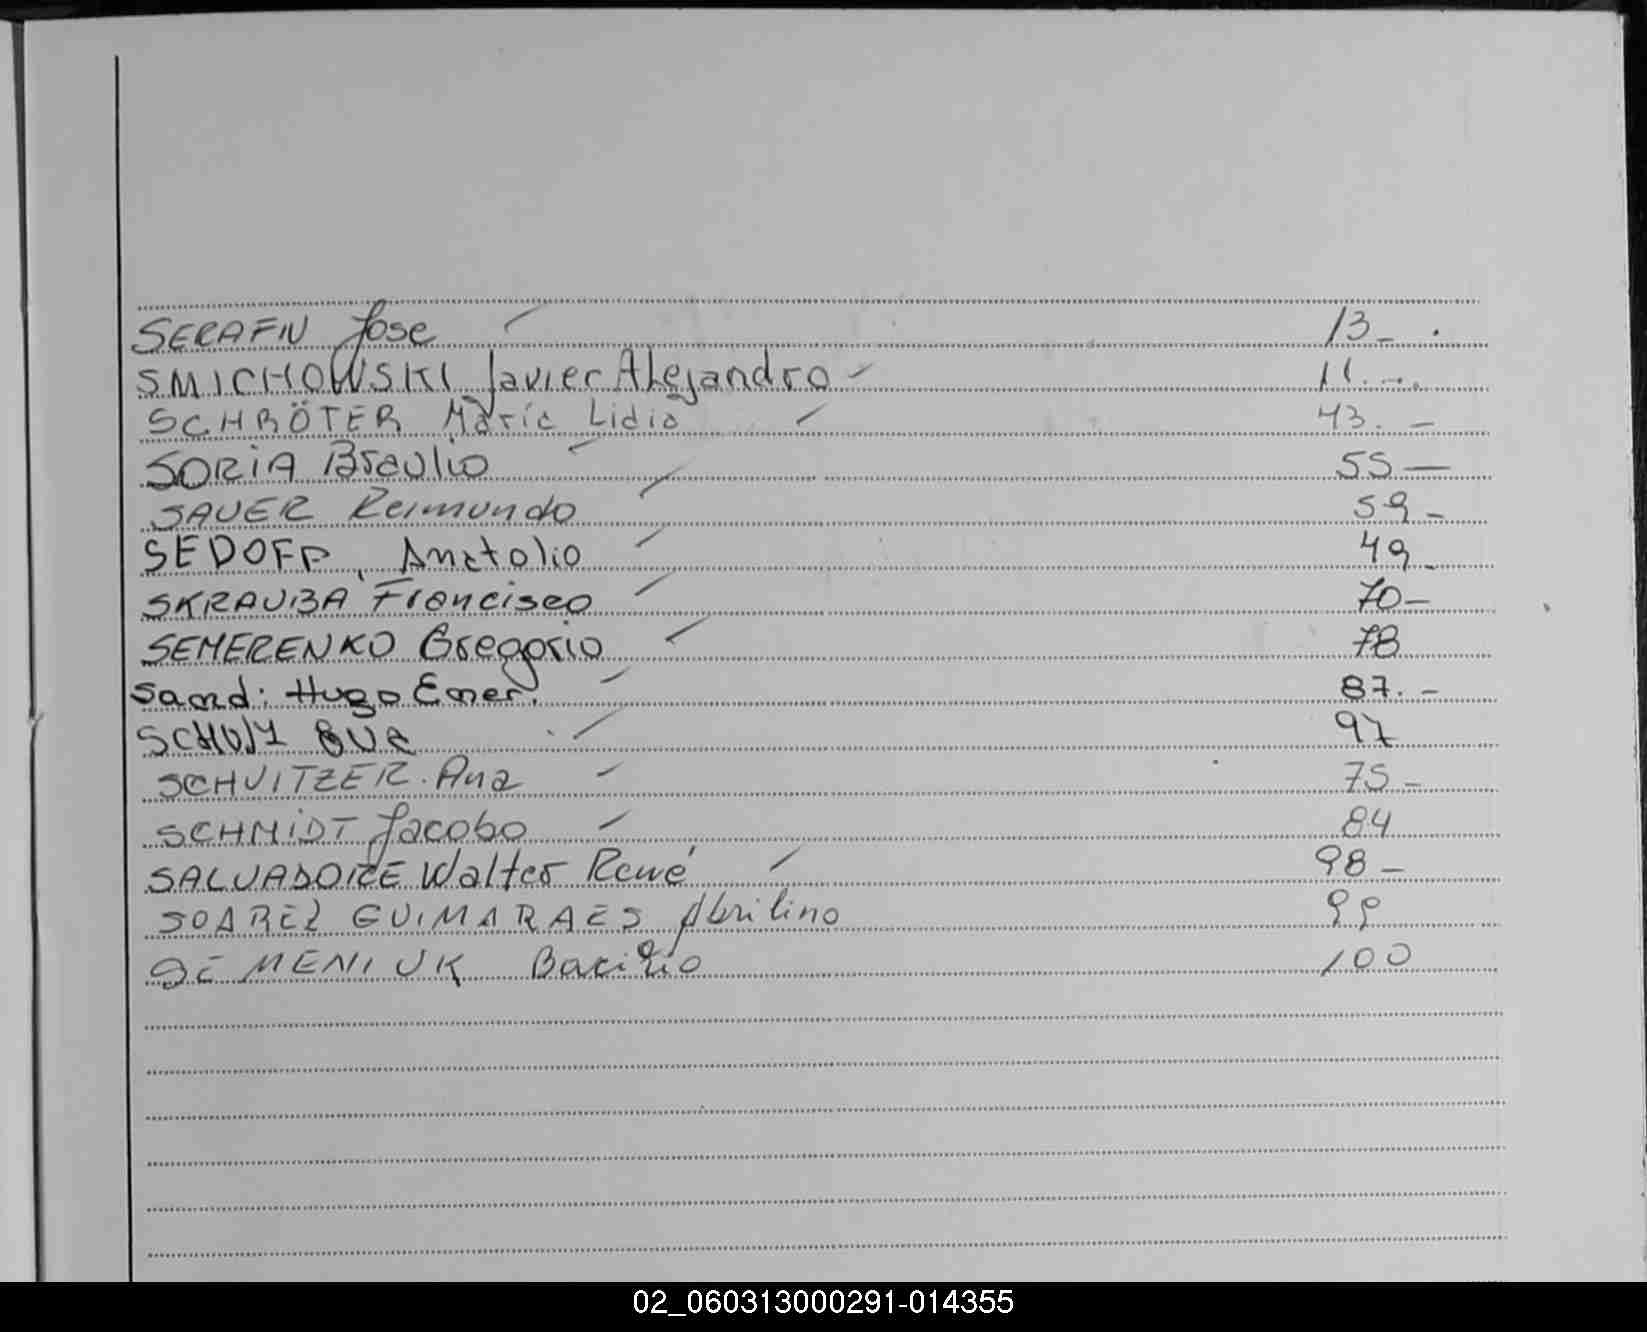 SERAFIN Jose 13-.
SMICHOWSKI Javier Alejandro 11.-.
SCHRÖTER María Lidia 43.-
SORIA Braulio 55-
SAUER Reimundo 59-
SEDOFF, Anatolio 49-
SKRAUBA Francisco 70-
SEMERENKO Gregorio 78
Sand: Hugo Emer. 87.-
97
SCHVITZER. Ana 75-
SCHMIDT Jacobo 84
SALVADORE Walter René 98-
SOAREZ GUIMARAES Abrilino 99
SEMENIUK Bacilio 100
02_060313000291-014355